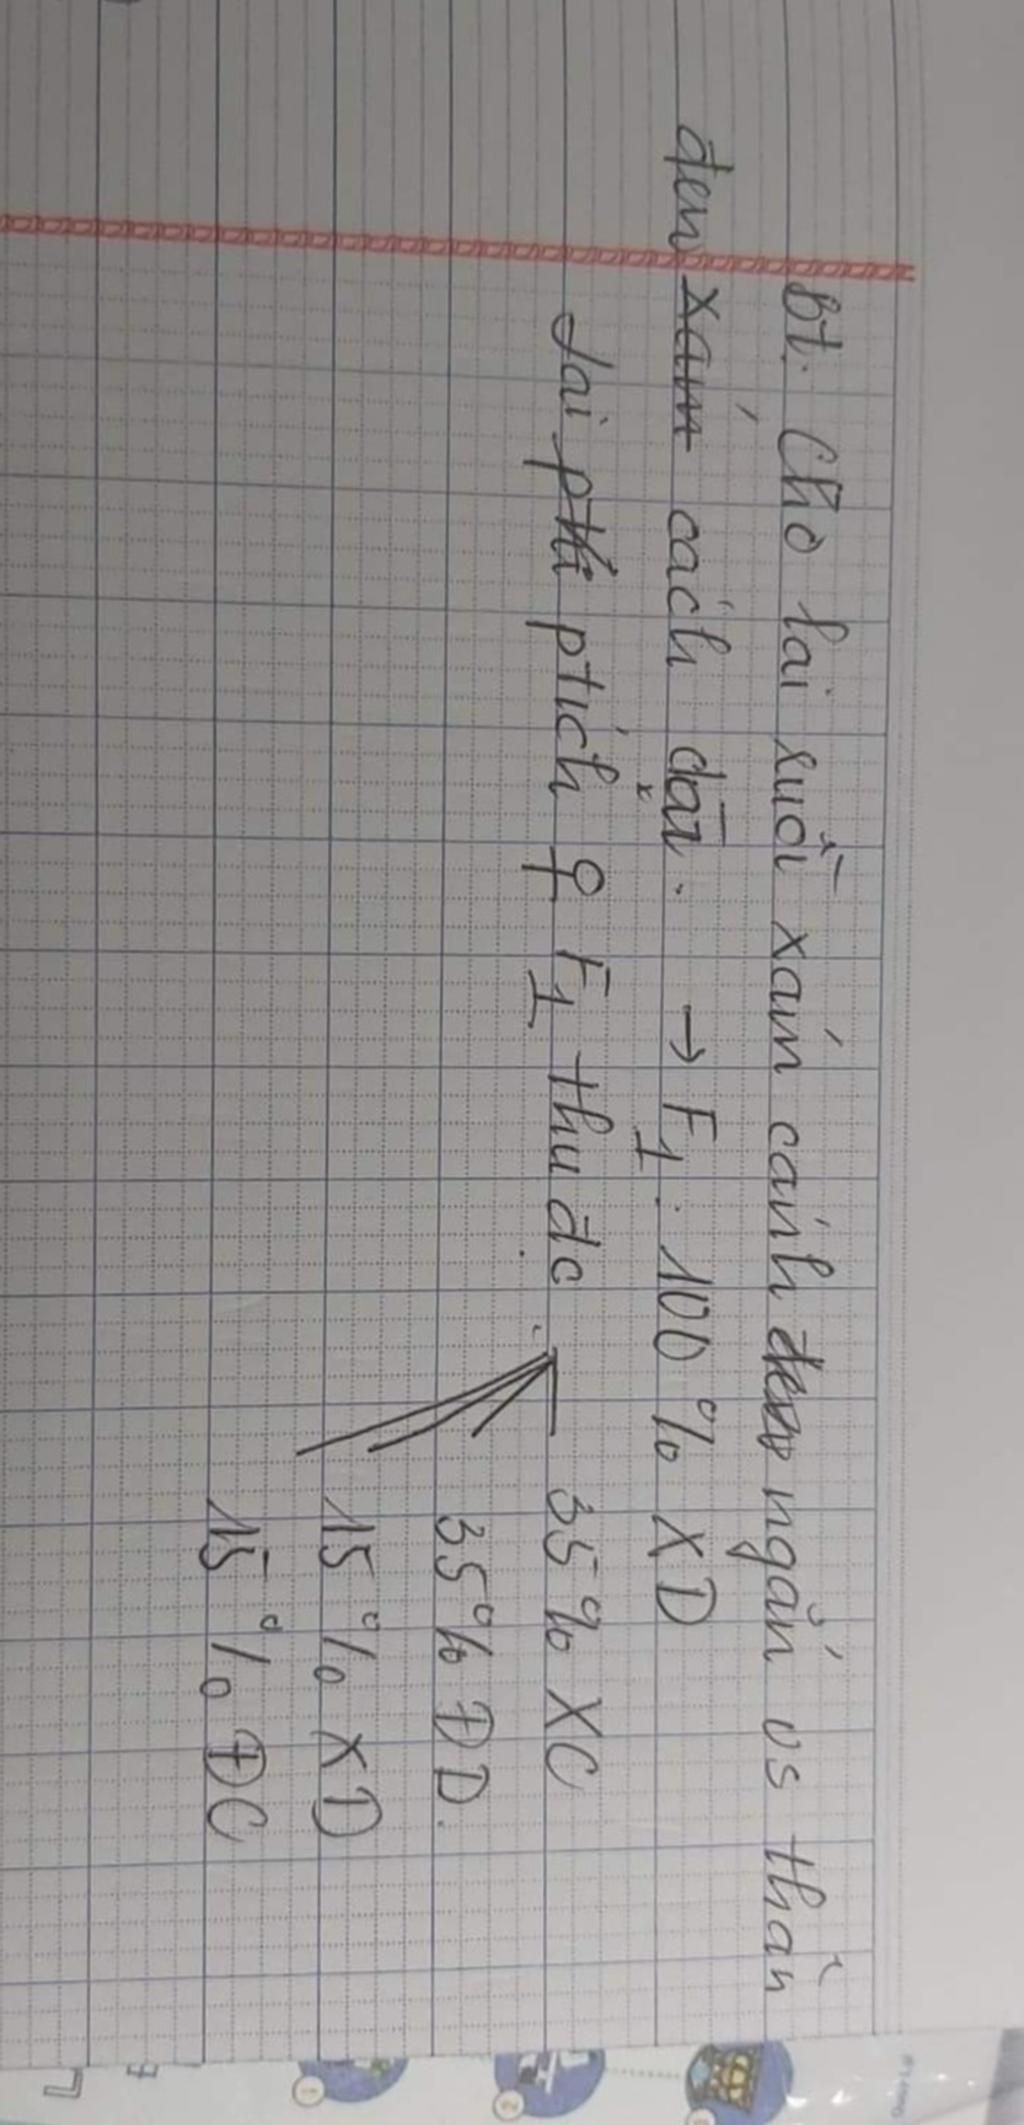 Bt: Cho lai ruồi xám cánh ngắn vs thân
đen cách dài. → F1: 100% XD
Lai ptích ♀ F1 thu đc
35% XC
35% ĐD.
15% XD
15% ĐC
1
2